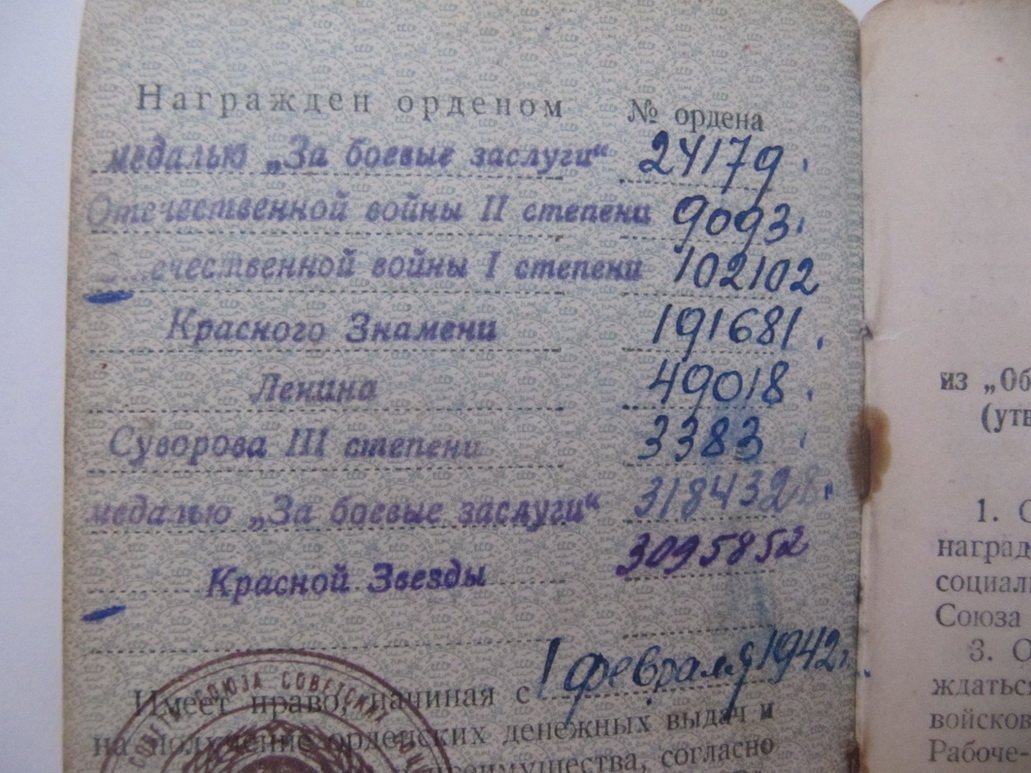 Награжден орденом № ордена
медалью „За боевые заслуги“ 24179.
Отечественной войны II степени 9093.
Отечественной войны I степени 102102
Красного Знамени 191681.
Ленина 49018.
Суворова III степени 3383
медалью „За боевые заслуги“
Красной Звезды 3095852
Имеет право, начиная с 1 февраля 1942г.
на получение орденских денежных выдач и
преимущества, согласно
СОЮЗА СОВЕТСКИХ
из „Об
(утв
1. С
наград
социал
Союза
3. О
ждатьс
войсков
Рабоче-